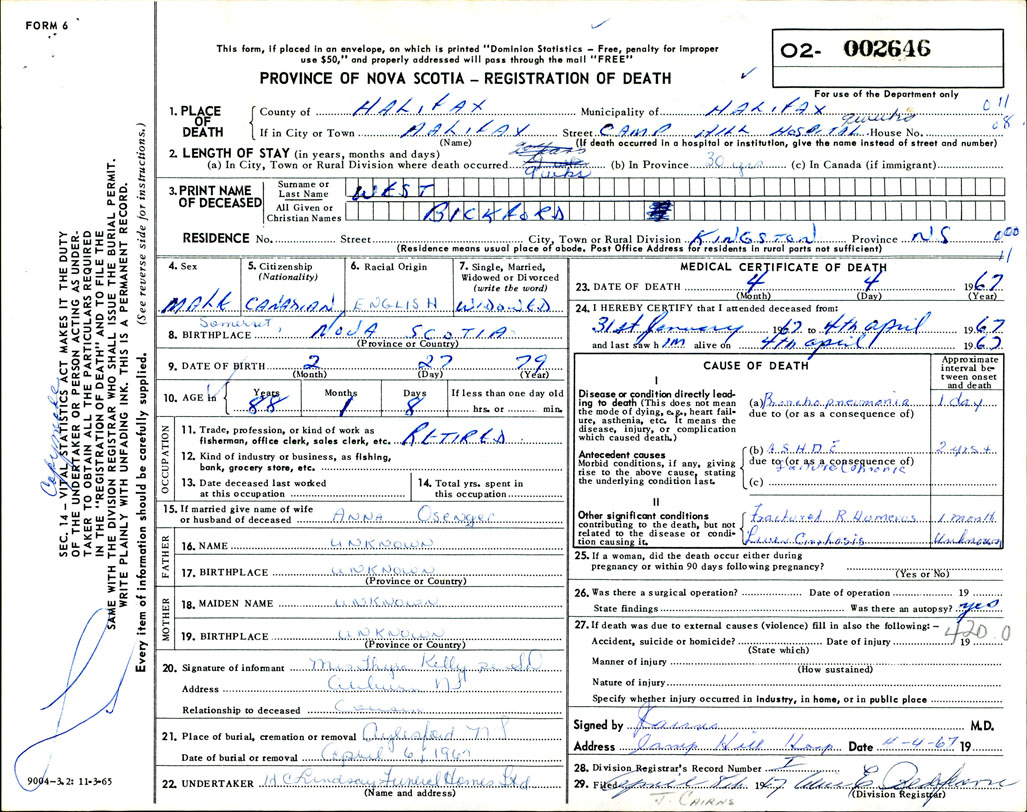 FORM 6
This form, if placed in an envelope, on which is printed "Dominion Statistics – Free, penalty for improper
use $50," and properly addressed will pass through the mail "FREE"
O2- 002646
PROVINCE OF NOVA SCOTIA – REGISTRATION OF DEATH
For use of the Department only
1. PLACE OF DEATH
County of HALIFAX Municipality of HALIFAX 011
If in City or Town HALIFAX Street CAMP HILL HOSPITAL House No. 08
(Name) (If death occurred in a hospital or institution, give the name instead of street and number)
2. LENGTH OF STAY (in years, months and days)
(a) In City, Town or Rural Division where death occurred 9 wks (b) In Province 30 yrs (c) In Canada (if immigrant)
3. PRINT NAME OF DECEASED
Surname or Last Name WEST
All Given or Christian Names BICKFORD
RESIDENCE No. Street City, Town or Rural Division KINGSTON Province NS
(Residence means usual place of abode. Post Office Address for residents in rural parts not sufficient) 11
4. Sex MALE
5. Citizenship (Nationality) CANADIAN
6. Racial Origin ENGLISH
7. Single, Married, Widowed or Divorced (write the word) WIDOWED
8. BIRTHPLACE Somerset, NOVA SCOTIA
(Province or Country)
9. DATE OF BIRTH 2 27 79
(Month) (Day) (Year)
10. AGE in Years 88 Months 1 Days 8 If less than one day old hrs. or min.
OCCUPATION
11. Trade, profession, or kind of work as fisherman, office clerk, sales clerk, etc. RETIRED
12. Kind of industry or business, as fishing, bank, grocery store, etc.
13. Date deceased last worked at this occupation
14. Total yrs. spent in this occupation
15. If married give name of wife or husband of deceased ANNA Osenger
FATHER
16. NAME UNKNOWN
17. BIRTHPLACE UNKNOWN
(Province or Country)
MOTHER
18. MAIDEN NAME UNKNOWN
19. BIRTHPLACE UNKNOWN
(Province or Country)
20. Signature of informant Kelly
Address NS
Relationship to deceased
21. Place of burial, cremation or removal Aylesford NS
Date of burial or removal April 6, 1967
22. UNDERTAKER H C Lindsay Funeral Homes Ltd
(Name and address)
9004-3.2: 11-3-65
MEDICAL CERTIFICATE OF DEATH
23. DATE OF DEATH 4 4 1967
(Month) (Day) (Year)
24. I HEREBY CERTIFY that I attended deceased from:
31st January 1967 to 4th April 1967
and last saw him alive on 4th April 1967
CAUSE OF DEATH
Approximate interval between onset and death
I
Disease or condition directly leading to death (This does not mean the mode of dying, e.g., heart failure, asthenia, etc. It means the disease, injury, or complication which caused death.)
(a) Bronchopneumonia 1 day
due to (or as a consequence of)
Antecedent causes
Morbid conditions, if any, giving rise to the above cause, stating the underlying condition last.
(b) A S H D E 2 yrs +
due to (or as a consequence of)
failure Chronic
(c)
II
Other significant conditions contributing to the death, but not related to the disease or condition causing it.
Fractured R Humerus 1 month
Liver Cirrhosis Unknown
25. If a woman, did the death occur either during pregnancy or within 90 days following pregnancy?
(Yes or No)
26. Was there a surgical operation? Date of operation 19
State findings Was there an autopsy? yes
27. If death was due to external causes (violence) fill in also the following: – 420.0
Accident, suicide or homicide? Date of injury 19
(State which)
Manner of injury
(How sustained)
Nature of injury
Specify whether injury occurred in industry, in home, or in public place
Signed by J Cairns M.D.
Address Camp Hill Hosp Date 4-4-67 19
28. Division Registrar's Record Number
29. Filed April 1967
(Division Registrar)
J. CAIRNS
SEC. 14 – VITAL STATISTICS ACT MAKES IT THE DUTY
OF THE UNDERTAKER OR PERSON ACTING AS UNDER-
TAKER TO OBTAIN ALL THE PARTICULARS REQUIRED
IN THE "REGISTRATION OF DEATH" AND TO FILE THE
SAME WITH THE DIVISION REGISTRAR WHO SHALL ISSUE THE BURIAL PERMIT.
WRITE PLAINLY WITH UNFADING INK. THIS IS A PERMANENT RECORD.
Every item of information should be carefully supplied. (See reverse side for instructions.)